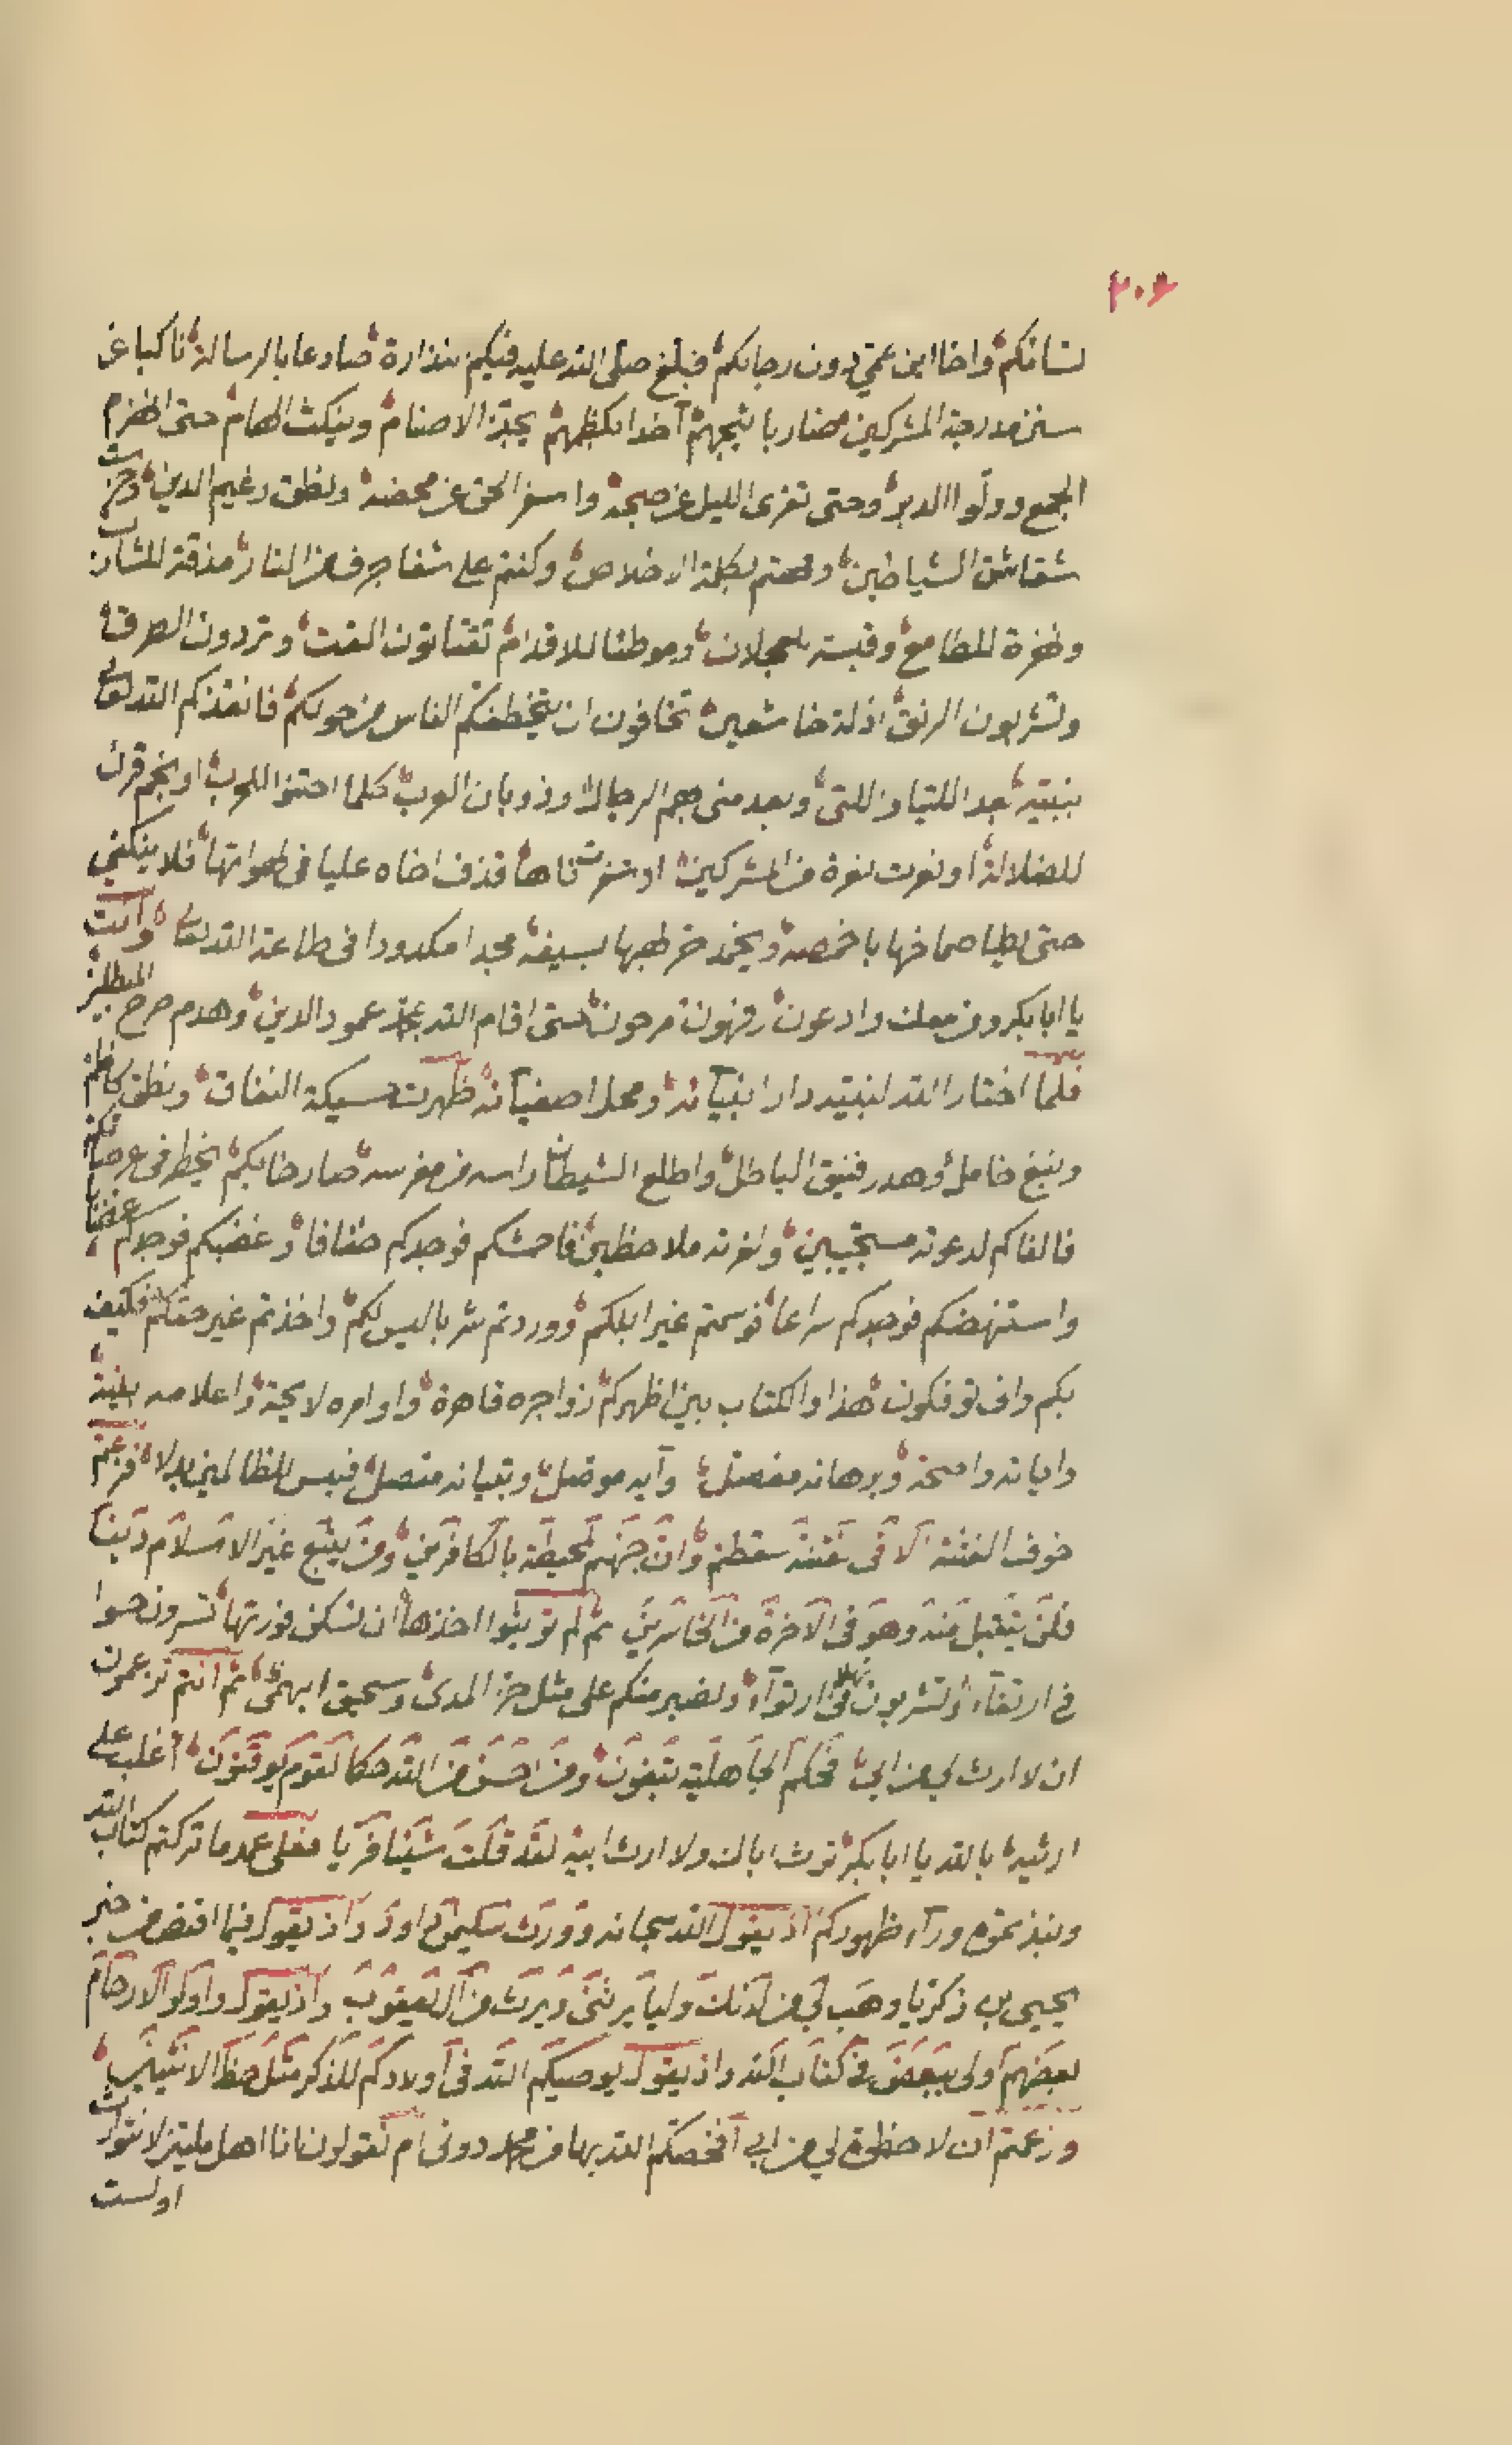 ٢٠٤
نسائكم واخا ابن عمي دون رجالكم فبلغ صلى الله عليه فيكم بنذارة صادعا بالرسالة ناكبا عن
سنن مدرجة المشركين ضاربا ثبجهم آخذا بكظمهم يجذ الاصنام وينكث الهام حتى انهزم
الجمع وولّوا الدبر وحتى تفرى الليل عن صبحه واسفر الحق عن محضه ونطق زعيم الدين وخرست
شقاشق الشياطين وفهتم بكلمة الاخلاص وكنتم على شفا جرف من النار مذقة للشارب
ونهزة للطامع وقبسة العجلان وموطئا للاقدام تقتاتون القت وتردون الطرق
وتشربون الرنق اذلة خاشعين تخافون ان يتخطفكم الناس من حولكم فانقذكم الله تعالى
بنبيه بعد اللتيا واللتى وبعد منى بهم الرجال وذوبان العرب كلما احشوا للحرب او نجم قرن
للضلالة او فغرت فغرة من المشركين فاها قذف اخاه عليا فى لهواتها فلا ينكفي
حتى يطا صماخها باخمصه ويخمد حر لهبها بسيفه مجدا مكدودا فى طاعة الله تعالى وانت
يا ابا بكر ومن معك وادعون رفهون فرحون حتى اقام الله بمحمد عمود الدين وهدم صرح المبطلين
فلما اختار الله لنبيه دار انبيآئه ومحل اصفيآئه ظهرت حسيكة النفاق ونطق كاظم
ونبغ خامل وهدر فنيق الباطل واطلع الشيطان راسه من مغرسه صارخا بكم يخطر فى عرصاتكم
فالفاكم لدعوته مستجيبين ولغرته ملاحظين فاحمشكم فوجدكم خفافا وغضبكم فوجدكم غضابا
واستنهضكم فوجدكم سراعا فوسمتم غير ابلكم ووردتم شربا ليس لكم واخذتم غير حقكم فكيف
بكم وانى تؤفكون هذا والكتاب بين اظهركم زواجره قاهرة واوامره لايحة واعلامه بينة
واياته واضحة وبرهانه مفصل وآيه موصل وتبيانه متصل فبئس للظالمين بدلا فزعمتم
خوف الفتنة الا فى الفتنة سقطتم وان جهنم لمحيطة بالكافرين ومن يبتغ غير الاسلام دينا
فلن يقبل منه وهو فى الآخرة من الخاسرين ثم لم تريثوا اخذها ان تسكن فورتها تسرون حسوا
فى ارتغاء وتشربون نهلا فى ارتوآء ونصبر منكم على مثل حز المدى وسحيق ابهمى ثم انتم تزعمون
ان لا ارث لي من ابي افحكم الجاهلية تبغون ومن احسن من الله حكما لقوم يوقنون أغلب على
ارثيه بالله يا ابا بكر ترث اباك ولا ارث ابيه لقد قلت شيئا فريا فعلى عمد ما تركتم كتاب الله
ونبذتموه ورآء ظهوركم اذ يقول الله سبحانه وورث سليمان داود واذ يقول فيما اقتص من خبر
يحيى بن زكريا وهب لي من لدنك وليا يرثنى ويرث من آل يعقوب واذ يقول واولوا الارحام
بعضهم اولى ببعض فى كتاب الله واذ يقول يوصيكم الله فى اولادكم للذكر مثل حظ الانثيين
وزعمتم ان لا حظوة لي من ابي أفخصكم الله بها من محمد دونى ام تقولون انا اهل ملتين لا نتوارث
اولست